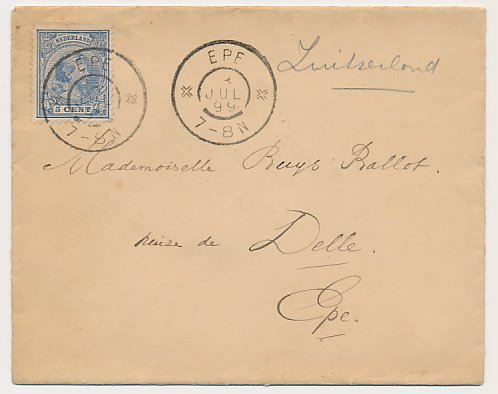 NEDERLAND
5 CENT
EPE
7-8N
EPE
JUL
99
7-8N
Zuitserlond
Mademoiselle Buys Ballot.
huize de Delle.
Epe.